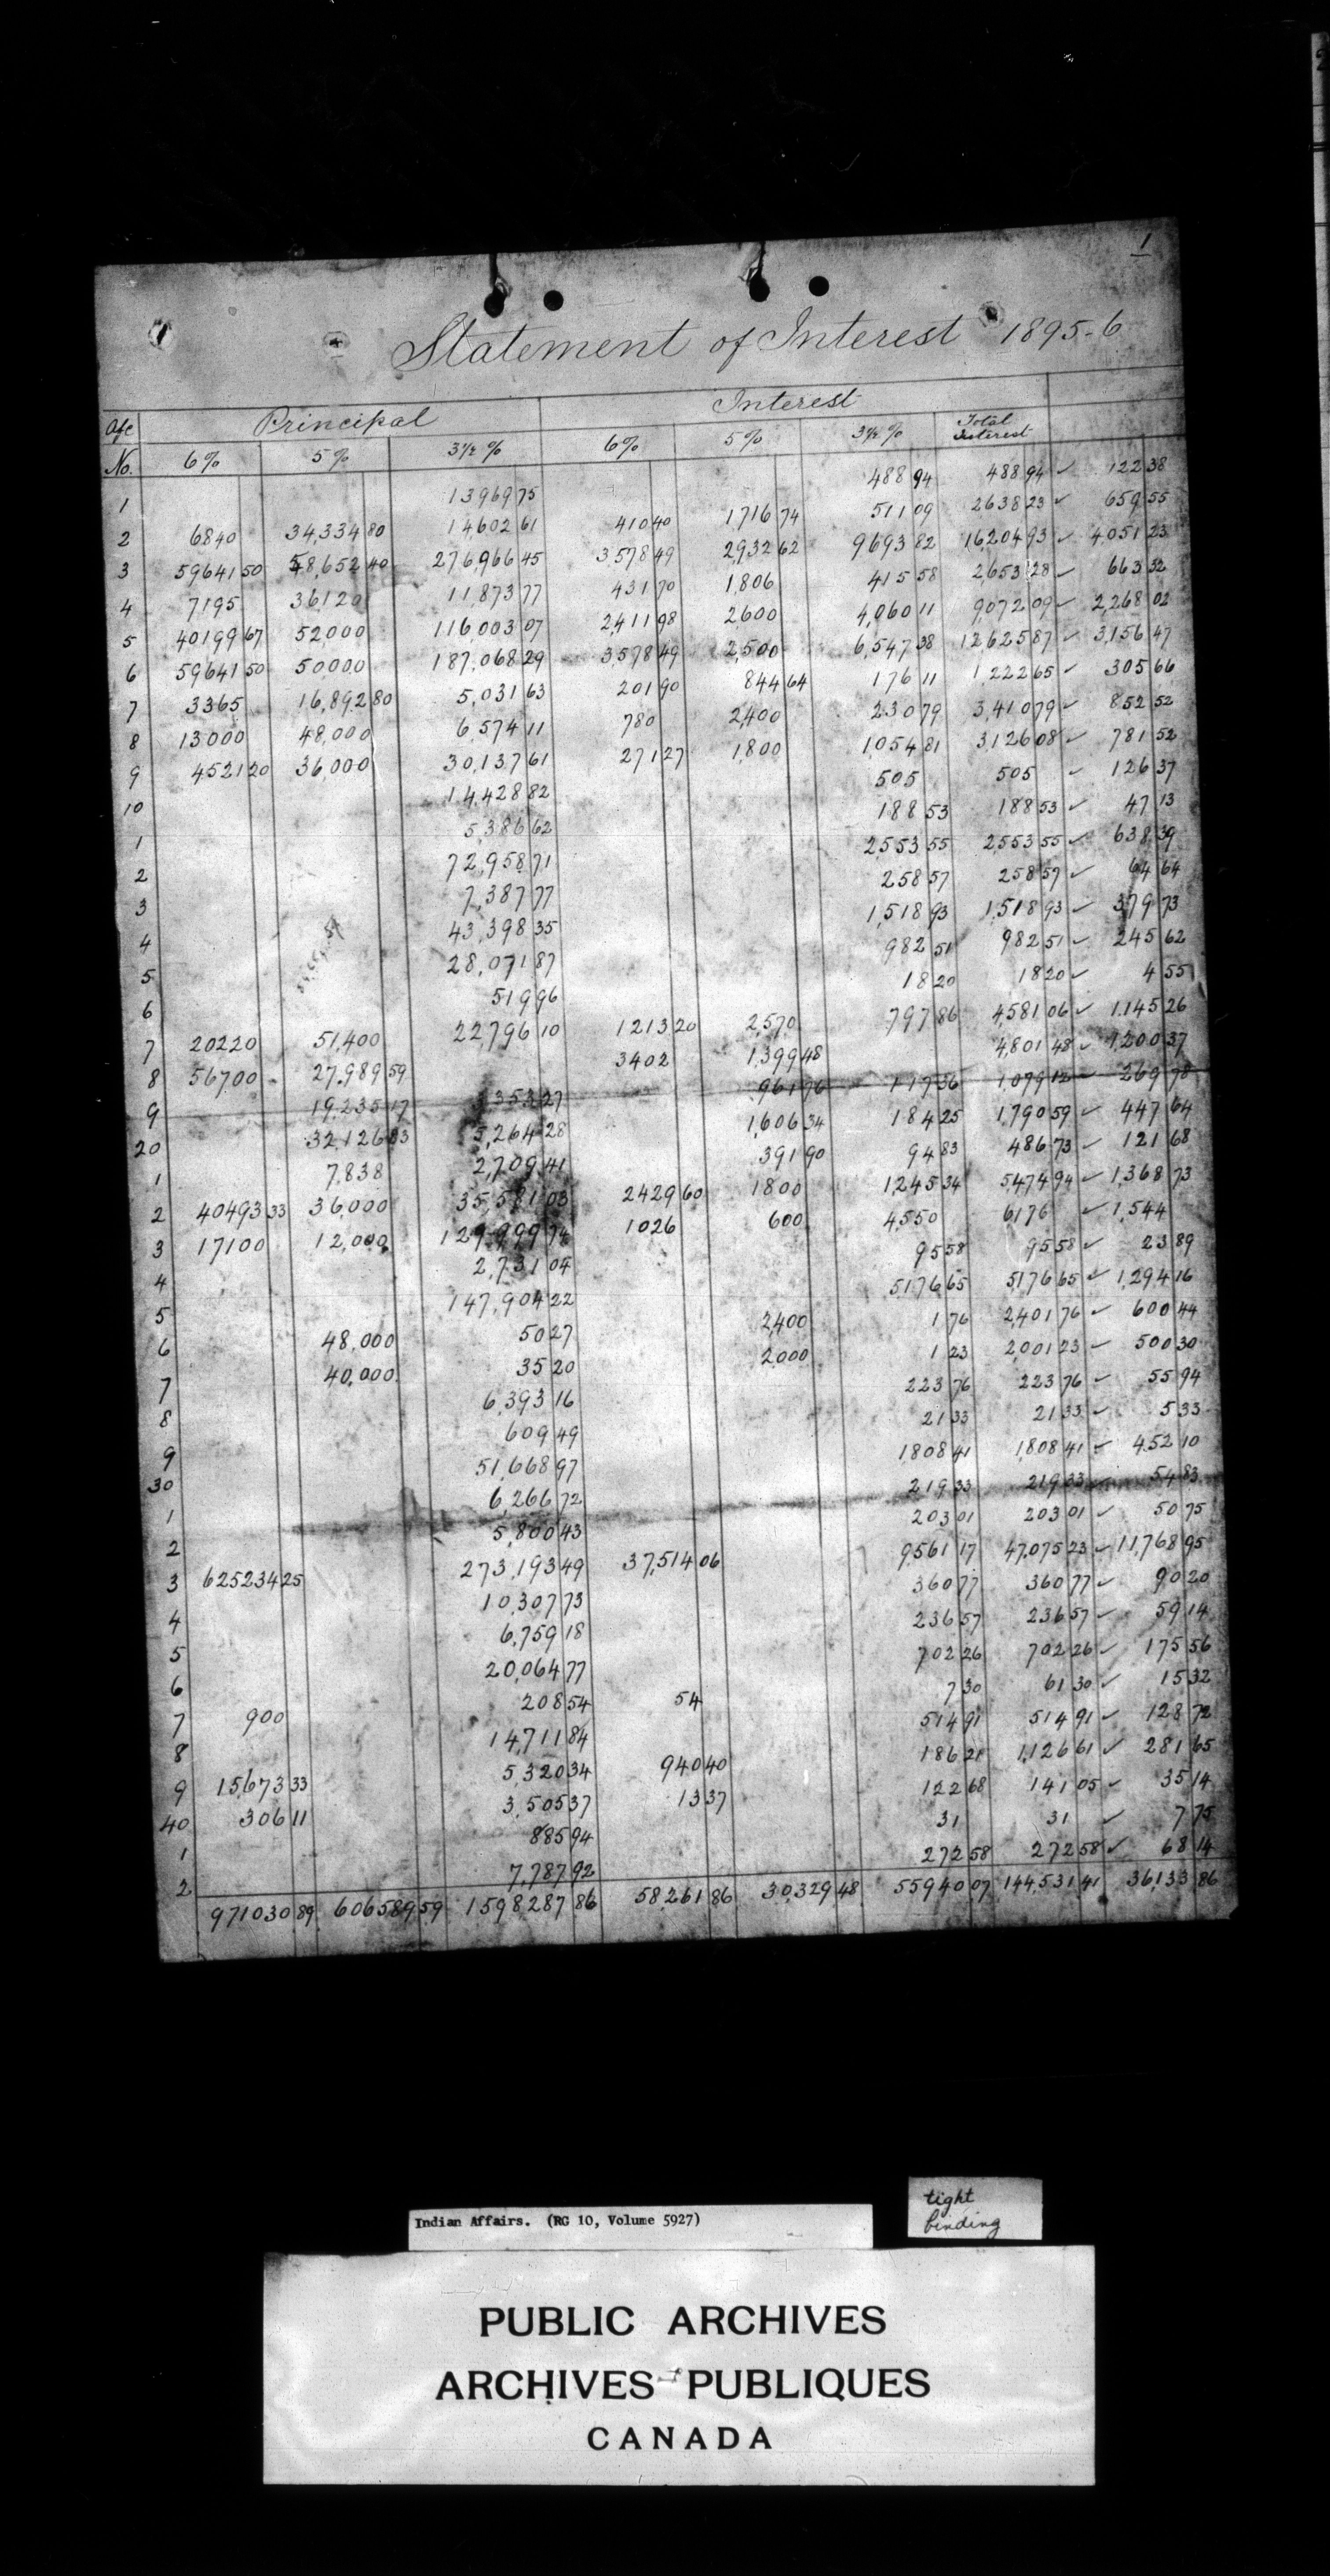 1
Statement of Interest 1895-6
A/c Principal Interest
No. 6% 5% 3½ % 6% 5% 3½ % Total Interest
1 13969 75 488 94 488 94 ✓ 122 38
2 6840 34,334 80 14,602 61 410 40 1716 74 511 09 2638 23 ✓ 659 55
3 59641 50 58,652 40 276,966 45 3,578 49 2932 62 9693 82 16,204 93 ✓ 4,051 23
4 7195 36,120 11,873 77 431 70 1,806 415 58 2653 28 ✓ 663 32
5 40199 67 52000 116,003 07 2,411 98 2,600 4,060 11 9,072 09 ✓ 2,268 02
6 59641 50 50,000 187,068 29 3,578 49 2,500 6,547 38 12625 87 ✓ 3,156 47
7 3365 16,892 80 5,031 63 201 90 844 64 176 11 1,222 65 ✓ 305 66
8 13000 48,000 6,574 11 780 2,400 230 79 3,410 79 ✓ 852 52
9 4521 20 36,000 30,137 61 271 27 1,800 1054 81 3,126 08 ✓ 781 52
10 14,428 82 505 505 ✓ 126 37
1 5,386 62 188 53 188 53 ✓ 47 13
2 72,958 71 2,553 55 2,553 55 ✓ 638 39
3 7,387 77 258 57 258 57 ✓ 64 64
4 43,398 35 1,518 93 1,518 93 ✓ 379 73
5 28,071 87 982 51 982 51 ✓ 245 62
6 519 96 18 20 18 20 ✓ 4 55
7 20220 51,400 22,796 10 1213 20 2,570 797 86 4,581 06 ✓ 1,145 26
8 56700 27,989 59 3402 1,399 48 4,801 48 ✓ 1,200 37
9 19,235 17 3,353 27 961 76 117 36 1,079 12 ✓ 269 78
20 32,126 83 5,264 28 1,606 34 184 25 1,790 59 ✓ 447 64
1 7,838 2,709 41 391 90 94 83 486 73 ✓ 121 68
2 40493 33 36,000 35,581 03 2429 60 1800 1,245 34 5,474 94 ✓ 1,368 73
3 17100 12,000 129,999 74 1026 600 4,550 6,176 ✓ 1,544
4 2,731 04 95 58 95 58 ✓ 23 89
5 147,904 22 5176 65 5,176 65 ✓ 1,294 16
6 48,000 50 27 2,400 1 76 2,401 76 ✓ 600 44
7 40,000 35 20 2,000 1 23 2,001 23 ✓ 500 30
8 6,393 16 223 76 223 76 ✓ 55 94
9 609 49 21 33 21 33 ✓ 5 33
30 51,668 97 1,808 41 1,808 41 ✓ 452 10
1 6,266 72 219 33 219 33 ✓ 54 83
2 5,800 43 203 01 203 01 ✓ 50 75
3 625234 25 273,193 49 37,514 06 9561 17 47,075 23 ✓ 11,768 95
4 10,307 73 360 77 360 77 ✓ 90 20
5 6,759 18 236 57 236 57 ✓ 59 14
6 20,064 77 702 26 702 26 ✓ 175 56
7 900 208 54 54 7 30 61 30 ✓ 15 32
8 14,711 84 514 91 514 91 ✓ 128 72
9 15,673 33 5,320 34 940 40 186 21 1,126 61 ✓ 281 65
40 306 11 3,505 37 13 37 122 68 141 05 ✓ 35 14
1 885 94 31 31 ✓ 7 75
2 7,787 92 272 58 272 58 ✓ 68 14
971030 89 606589 59 1598287 86 58,261 86 30,329 48 55940 07 144,531 41 36,133 86
tight
binding
Indian Affairs. (RG 10, Volume 5927)
PUBLIC ARCHIVES
ARCHIVES PUBLIQUES
CANADA